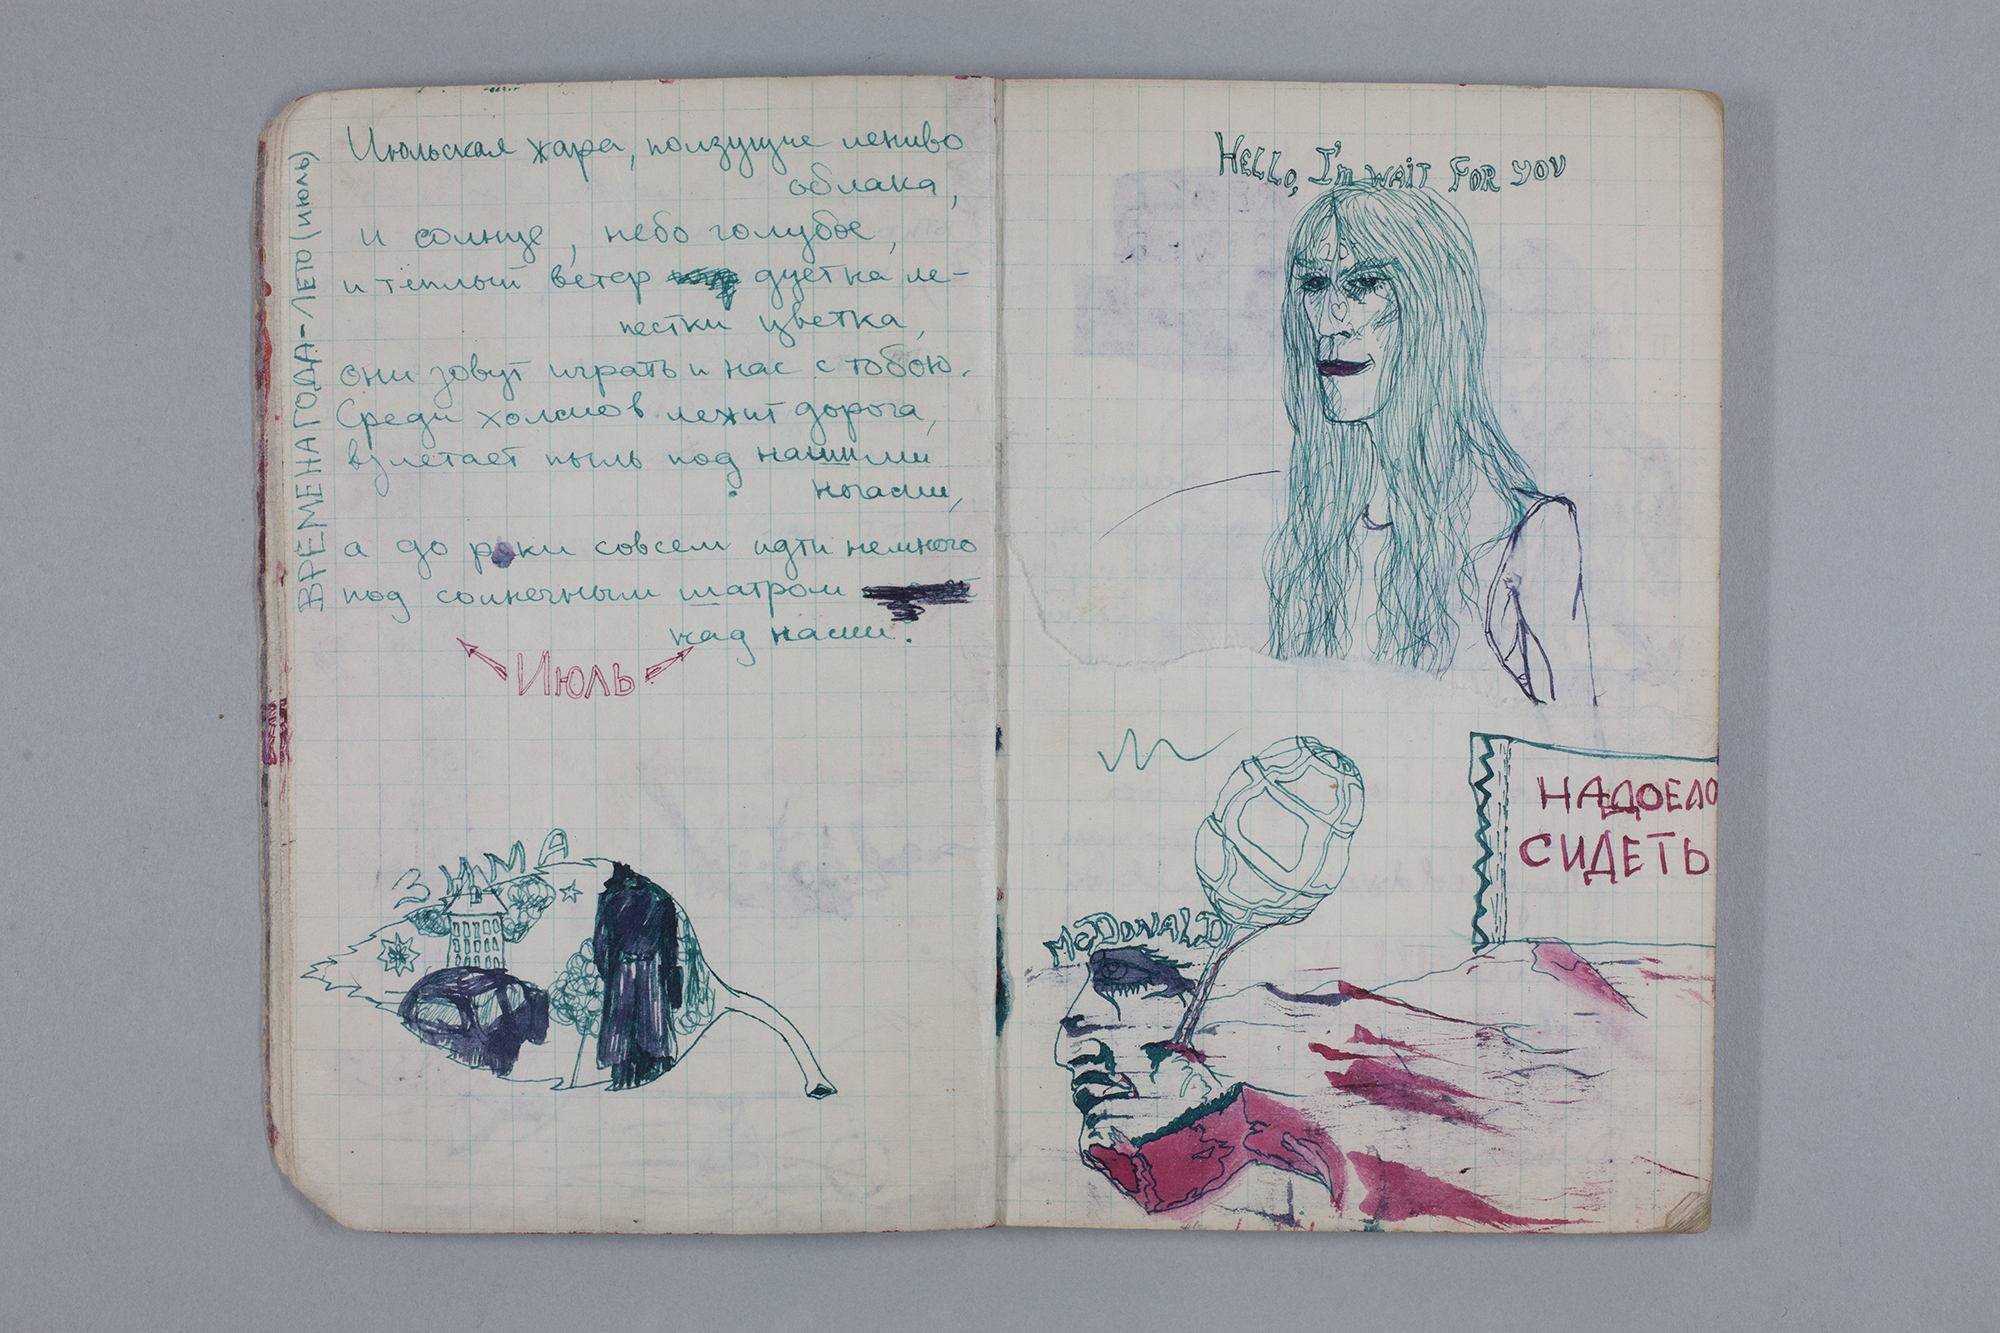 ВРЕМЕНА ГОДА - ЛЕТО (ИЮЛЬ)
Июльская жара, ползущие лениво
облака,
и солнце, небо голубое,
и тёплый ветер дует на ле-
пестки цветка,
они зовут играть и нас с тобою.
Среди холмов лежит дорога,
взлетает пыль под нашими
ногами,
а до реки совсем идти немного
под солнечным шатром
над нами.
Июль
ЗИМА
HELLO, I'm WAIT FOR YOU
НАДОЕЛО
СИДЕТЬ
McDONALD